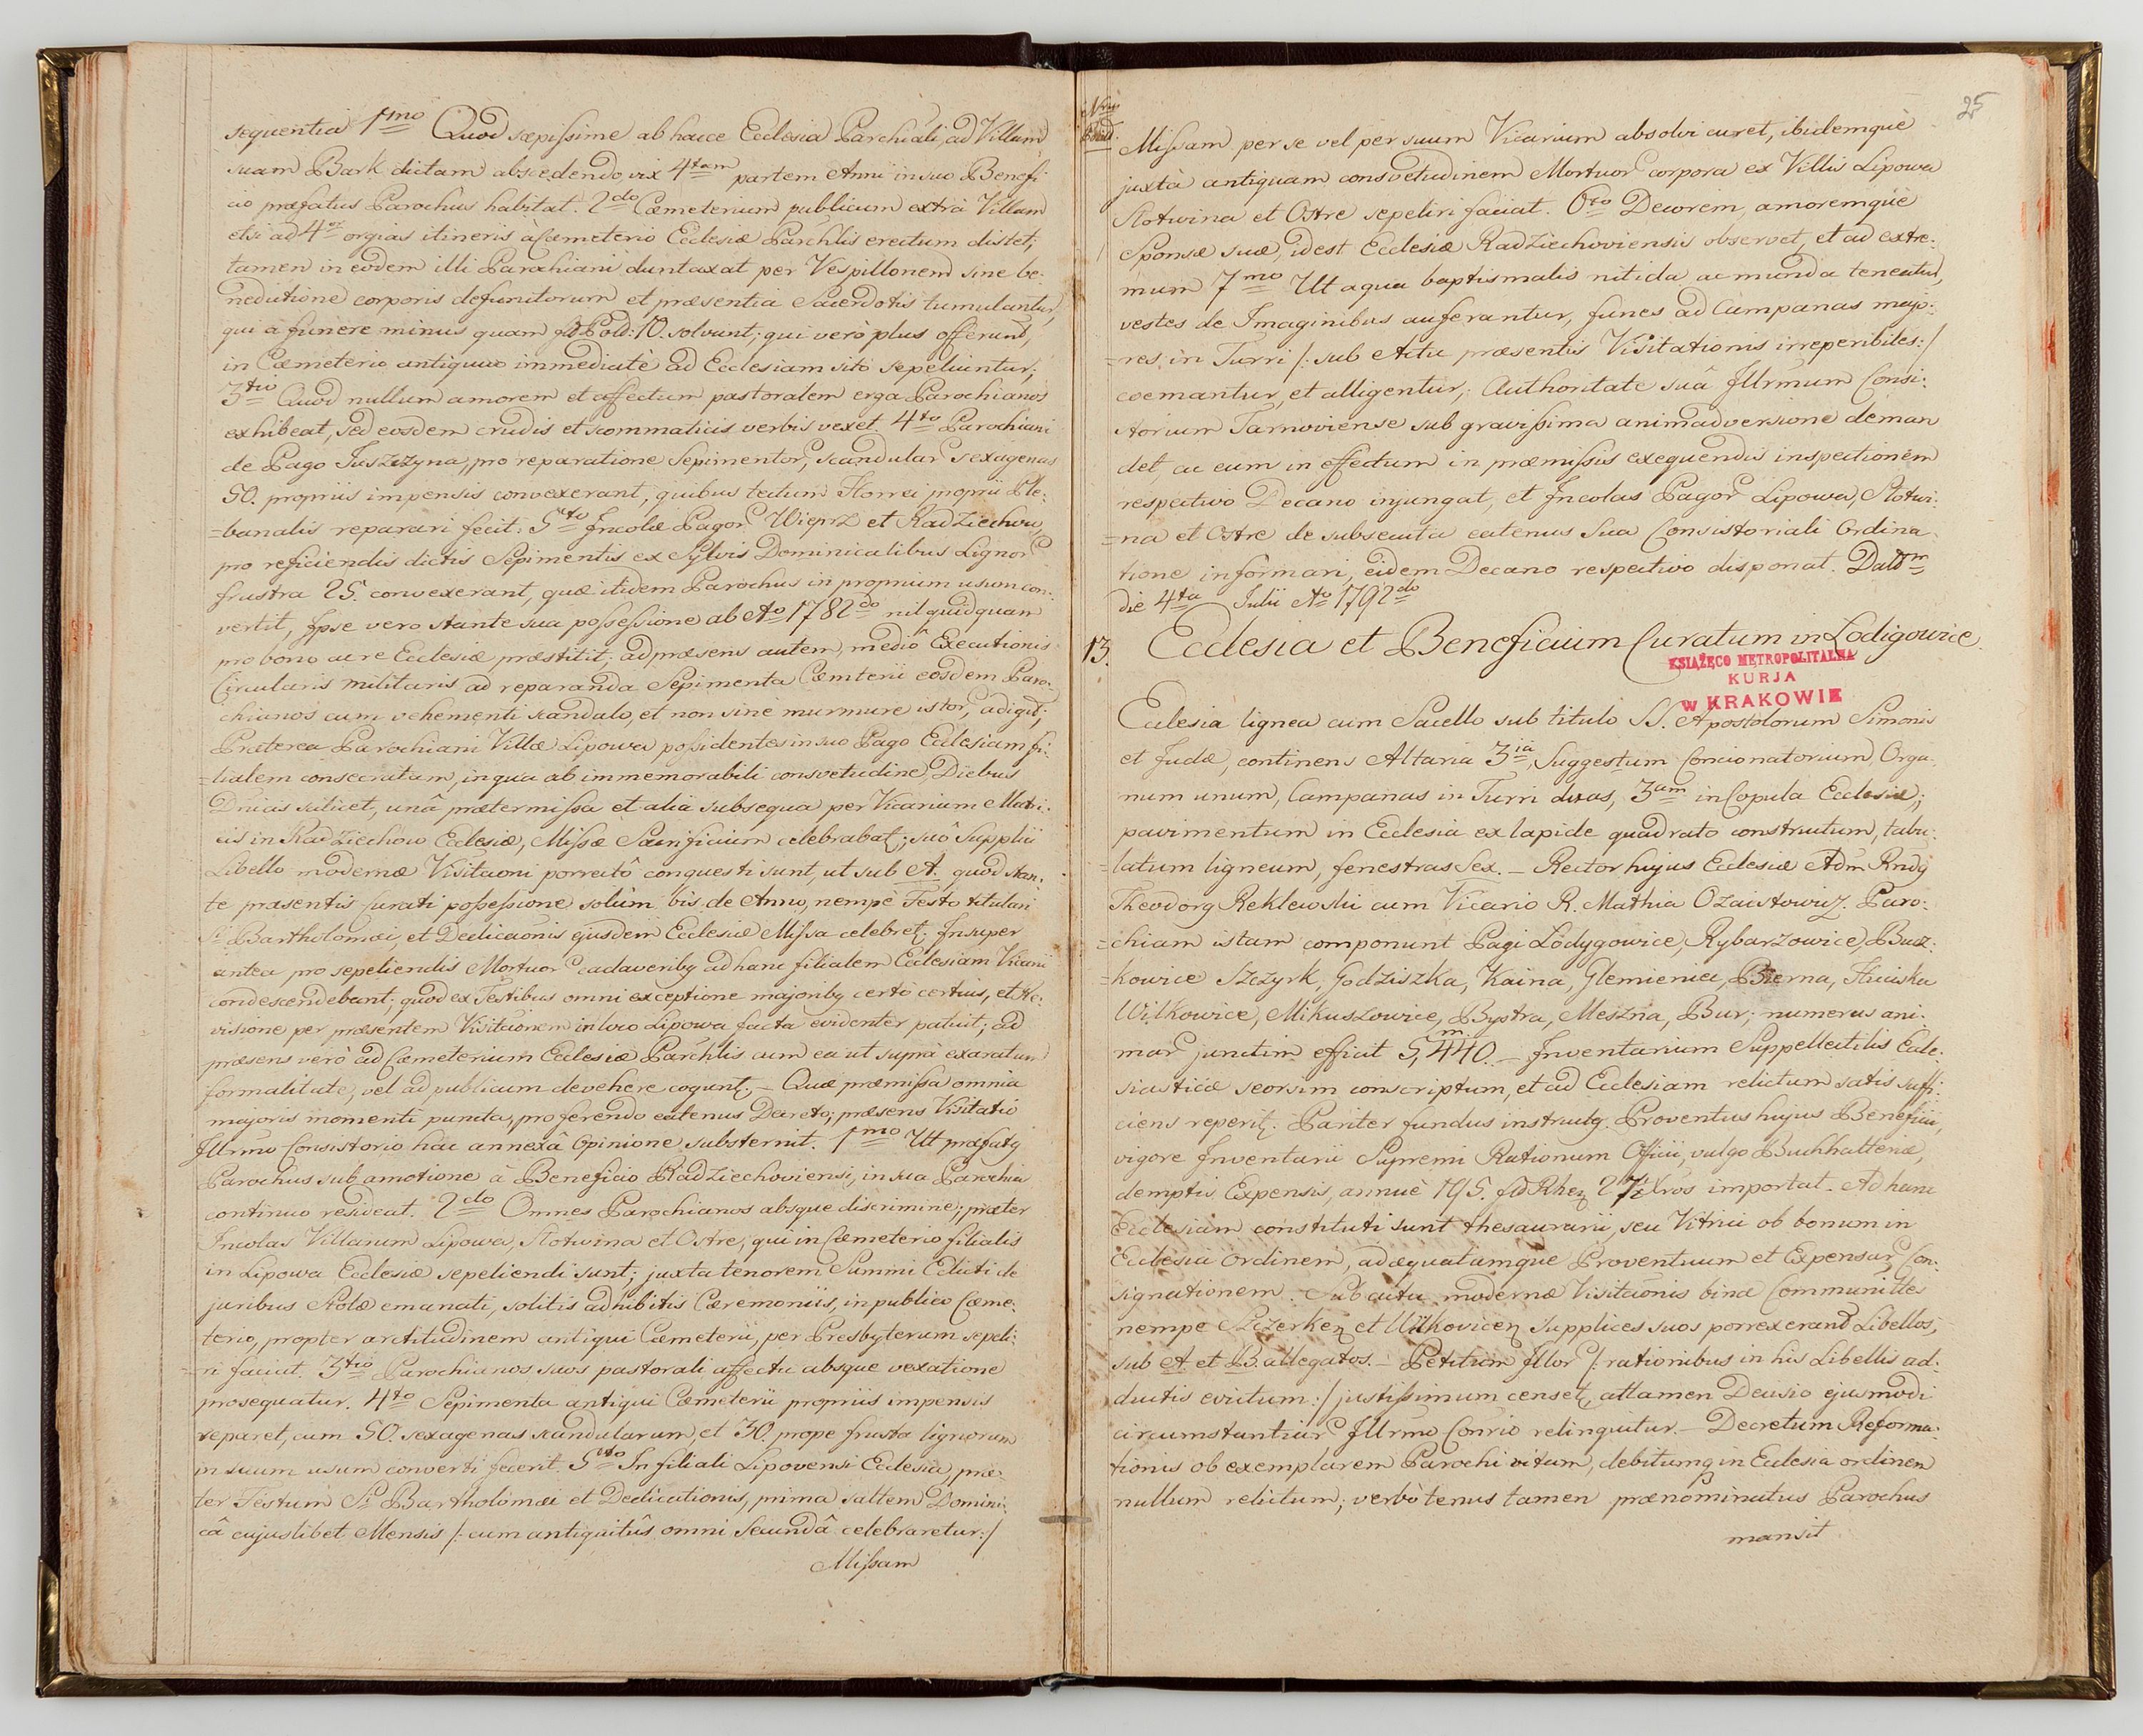 sequentia 1mo Quod sæpissime ab hacce Ecclesia Parchiali, ad Villam
suam Bark dictam abscedendo vix 4tam partem Anni in suo Benefi
cio præfatus Parochus habitat. 2do Cæmeterium publicum extra Villam
etsi ad 4or orgias itineris à Cæmeterio Ecclesiæ Parchlis erectum distet,
tamen in eodem illi Parochiani duntaxat per Vespillonem sine be:
nedictione corporis defunctorum et præsentia Sacerdotis tumulantur,
qui a funere minus quam Pold: 10. solvunt; qui verò plus offerunt,
in Cæmeterio antiquo immediatè ad Ecclesiam sito sepeliuntur;
3tio Quod nullum amorem et affectum pastoralem erga Parochianos
exhibeat, sed eosdem crudis et scommaticis verbis vexet. 4to Parochiani
de Pago Juszczyna, pro reparatione Sepimentor, scandular sexagenas
50. propriis impensis convexerant, quibus tectum Horrei proprii Ple:
=banalis reparari fecit. 5to Incolæ Pagor Wieprz et Radziechow,
pro reficiendis dictis Sepimentis ex Sylvis Dominicalibus Lignor
frustra 25. convexerant, quæ itidem Parochus in proprium usum con:
vertit, Ipse vero stante sua possessione ab Ao 1782do nil quidquam
pro bono ac re Ecclesiæ præstitit; ad præsens autem, mediô Executionis
Circularis militaris ad reparanda Sepimenta Cæmterii eosdem Paro:
chianos cum vehementi scandalo, et non sine murmure istor, adigit;
Præterea Parochiani Villæ Lipowa possidentes in suo Pago Ecclesiam fi:
=lialem consecratam, in qua ab immemorabili consvetudine, Diebus
Dnicis scilicet, unâ prætermissa et alia subsequa per Vicarium Matri:
cis in Radziechow Ecclesiæ, Missæ Sacrificium celebrabat; suô Supplici
Libello modernæ Visitaoni porrectô conquesti sunt, ut sub A. quod stan:
te præsentis Curati possessione solùm bis de Anno, nempè Festo titulari
Sti Bartholomæi, et Dedicaonis ejusdem Ecclesiæ Missa celebret. Insuper
antea pro sepeliendis Mortuor cadaveribg ad hanc filialem Ecclesiam Vicarii
condescendebant; quod ex Testibus omni exceptione majoribg certò certius, et Re:
visione per præsentem Visitaonem in loco Lipowa facta evidenter patuit; ad
præsens verò ad Cæmeterium Ecclesiæ Parchlis cum ea ut suprà exaratum
formalitate, vel ad publicum devehere cogunt. – Quæ præmissa omnia
majoris momenti puncta, proferendo eatenus Decreto, præsens Visitatio
Illrmo Consistorio hâc annexâ Opinione substernit. 1mo Ut præfatg
Parochus sub amotione à Beneficio Radziechoviensi, in sua Parochia
continuo resideat. 2do Omnes Parochianos absque discrimine, præter
Incolas Villarum Lipowa, Slotwina et Ostre, qui in Cæmeterio filialis
in Lipowa Ecclesiæ sepeliendi sunt, juxta tenorem Summi Edicti de
juribus Stolæ emanati, solitis adhibitis Cæremoniis, in publico Cæme:
terio, propter arctitudinem antiqui Cæmeterii, per Presbyterum sepeli:
=ri faciat. 3tio Parochianos suos pastorali affectu absque vexatione
prosequatur. 4to Sepimenta antiqui Cæmeterii propriis impensis
reparet, cum 50. sexagenas scandularum, et 30. prope frusta lignorum
in suum usum converti fecerit. 5to In filiali Lipovensi Ecclesia præ:
ter Festum Sti Bartholomæi et Dedicationis, prima saltem Domini:
câ cujuslibet Mensis /: cum antiquitûs omni Secundâ celebraretur :/
Missam
25
Missam per se vel per suum Vicarium absolvi curet, ibidemquè
juxtà antiquam consvetudinem Mortuor corpora ex Villis Lipowa
Slotwina et Ostre sepeliri faciat. 6to Decorem, amoremquè
Sponsæ suæ, id est Ecclesiæ Radziechoviensis observet, et ad extre:
mum 7mo Ut aqua baptismalis nitida ac munda teneatur,
vestes de Imaginibus auferantur, funes ad Campanas majo:
=res in Turri /: sub Actu præsentis Visitationis irreperibiles :/
coemantur, et alligentur; Authoritate suâ Illrmum Consi:
storium Tarnoviense sub gravissima animadversione deman
det, ac eum in effectum in præmissis exequendis inspectionem
respectivo Decano injungat, et Incolas Pagor Lipowa, Slotwi:
=na et Ostre de subsecuta eatenus Sua Consistoriali Ordina
tione informari, eidem Decano respectivo disponat. Datt
die 4ta Julii Ao 1792do
13. Ecclesia et Beneficium Curatum in Lodigowice.
KSIĄŻĘCO METROPOLITALNA
KURJA
W KRAKOWIE
Ecclesia lignea cum Sacello sub titulo SS. Apostolorum Simonis
et Judæ, continens Altaria 3ia, Suggestum Concionatorium, Orga:
num unum, Campanas in Turri duas, 3am in Copula Ecclesiæ;
pavimentum in Ecclesia ex lapide quadrato constructum, tabu:
=latum ligneum, fenestras Sex. – Rector hujus Ecclesiæ Adm Rndg
Theodorg Reklewski cum Vicario R. Mathia Ozaistowicz. Paro:
=chiam istam componunt Pagi Lodygowice, Rybarzowice, Bucz:
=kowice Szczyrk, Godziszka, Kaina, Glemieniec, Bierna, Huciska
Wilkowice, Mikuszowice, Bystra, Meszna, Bur; numerus ani:
mar junctim efficit 5,440. – Inventarium Suppellectilis Eccle:
siasticæ seorsim conscriptum, et ad Ecclesiam relictum satis suffi:
ciens reperit. Pariter fundus instructg. Proventus hujus Beneficii,
vigore Inventarii Supremi Rationum Officii, vulgo Buchhalteriæ,
demptis Expensis, annuè 195. fld Rhen 27½ Xros importat. Ad hanc
Ecclesiam constituti sunt thesaurarii, seu Vitrici ob bonum in
Ecclesia ordinem, adæquatamque Proventuum et Expensar, Con:
signationem. Sub actu modernæ Visitaonis binæ Communittes
nempe Szczerken et Wilkovicen supplices suos porrexerant Libellos,
sub A. et B. allegatos. – Petitum Illor /: rationibus in his Libellis ad:
ductis evictum :/ justissimum censet, attamen Decisio ejusmodi
circumstantiar Illrmo Consrio relinquitur. – Decretum Reforma:
tionis ob exemplarem Parochi vitam, debitumq in Ecclesia ordinem
nullum relictum; verbò tenus tamen prænominatus Parochus
mansit